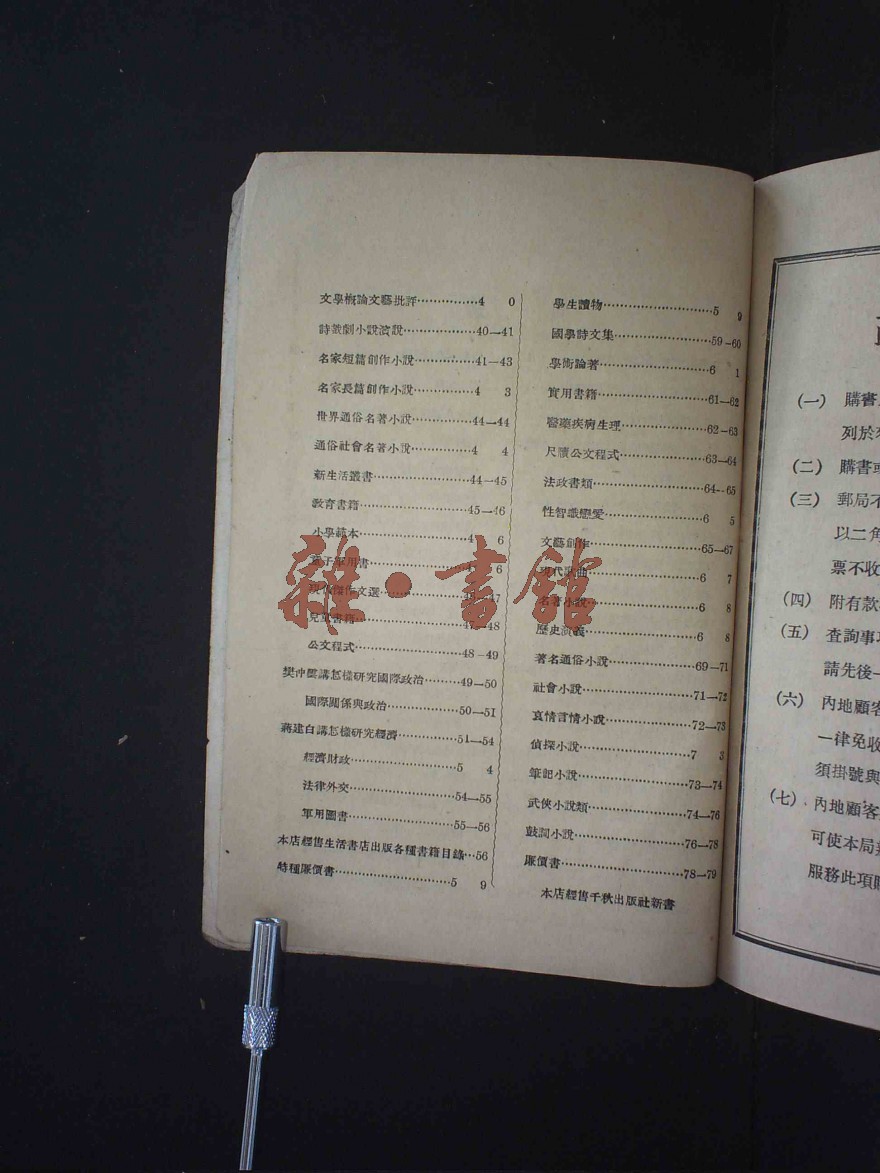 文學概論文藝批評……………4 0
詩歌劇小說演說……………40—41
名家短篇創作小說……………41—43
名家長篇創作小說……………4 3
世界通俗名著小說……………44—44
通俗社會名著小說……………4 4
新生活叢書……………44—45
教育書籍……………45—46
小學範本……………4 6
童子軍用書……………4 6
現代傑作文選……………47
兒童書籍……………47—48
公文程式……………48—49
樊仲雲講怎樣研究國際政治………49—50
國際關係與政治……………50—51
蔣建白講怎樣研究經濟……………51—54
經濟財政……………5 4
法律外交……………54—55
軍用圖書……………55—56
本店經售生活書店出版各種書籍目錄…56
特種廉價書……………5 9
學生讀物……………5 9
國學詩文集……………59—60
學術論著……………6 1
實用書籍……………61—62
醫藥疾病生理……………62—63
尺牘公文程式……………63—64
法政書類……………64—65
性智識戀愛……………6 5
文藝創作……………65—67
現代戲曲……………6 7
名著小說……………6 8
歷史演義……………6 8
著名通俗小說……………69—71
社會小說……………71—72
哀情言情小說……………72—73
偵探小說……………7 3
筆記小說……………73—74
武俠小說類……………74—76
鼓詞小說……………76—78
廉價書……………78—79
本店經售千秋出版社新書
雜·書館
(一) 購書
列於
(二) 購書或
(三) 郵局不
以二角
票不收
(四) 附有款
(五) 查詢事項
請先後一
(六) 內地顧客
一律免收
須掛號與
(七) 內地顧客
可使本局
服務此項